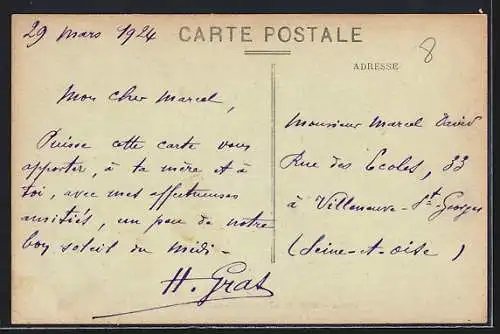 29 mars 1924
CARTE POSTALE
8
ADRESSE
Mon cher Marcel,
Puisse cette carte vous
apporter, à ta mère et à
toi, avec mes affectueuses
amitiés, un peu de notre
bon soleil du midi -
H. Gras
Monsieur Marcel David
Rue des Ecoles, 33
à Villeneuve-St-Georges
(Seine-et-Oise)